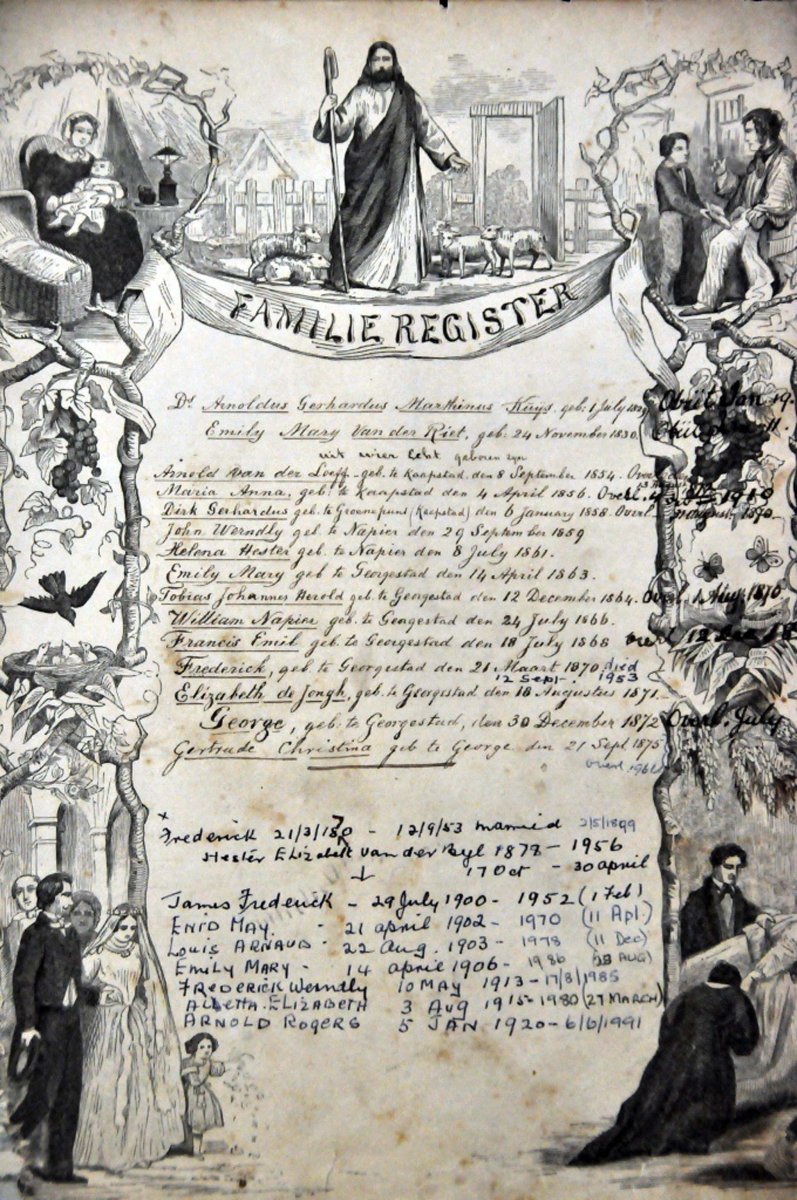 FAMILIE REGISTER
Ds Arnoldus Gerhardus Marthinus Kuys. geb: 1 July Obiit Jan 19.
Emily Mary Van der Riet, geb: 24 November 1830. Obiit 11.
uit wier Echt geboren zyn
Arnold van der Loeff - geb. te Kaapstad den 8 September 1854. Overl.
Maria Anna, geb. te Kaapstad den 4 April 1856. Overl. 1910
Dirk Gerhardus geb. te Groenepunt (Kaapstad) den 6 January 1858. Overl. 21 August 1870.
John Werndly geb. te Napier den 29 September 1859
Helena Hester geb. te Napier den 8 July 1861.
Emily Mary geb te Georgestad den 14 April 1863.
Tobias Johannes Herold geb. te Georgestad den 12 December 1864. Overl. 1 Aug. 1870
William Napier geb. te Georgestad den 24 July 1866.
Francis Emil geb. te Georgestad den 18 July 1868 overl 12 Dec 18
Frederick, geb. te Georgestad den 21 Maart 1870, died
12 Sept. 1953
Elizabeth de Jongh, geb. te Georgestad den 18 Augustus 1871.
George, geb. te Georgestad, den 30 December 1872 Overl. July
Gertrude Christina geb te George den 21 Sept. 1875
overl. 196
x
Frederick 21/3/1870 - 12/9/53 married 2/5/1899
Hester Elizabeth van der Byl 1878 - 1956
17 Oct - 30 april
↓
James Frederick - 29 July 1900 - 1952 (1 Feb)
ENID MAY. - 21 april 1902 - 1970 (11 Apl.)
Louis ARNAUD - 22 Aug. 1903 - 1978 (11 Dec)
Emily MARY - 14 april 1906 - 1986 (23 AUG)
FREDERICK Werndly 10 MAY 1913 - 17/8/1985
Albetta ELIZABETH 3 Aug 1915 - 1980 (27 MARCH)
ARNOLD ROGERS 5 JAN 1920 - 6/6/1991